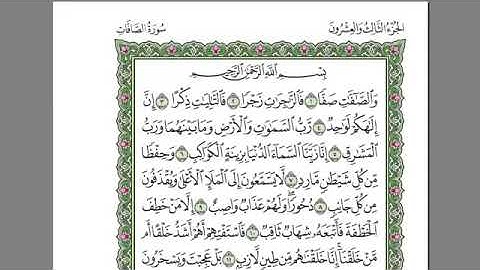 الجُزءُ الثَّالِثُ وَالعِشْرُونَ سُورَةُ الصَّافَّاتِ
بِسْمِ اللَّهِ الرَّحْمَٰنِ الرَّحِيمِ
وَالصَّافَّاتِ صَفًّا ١ فَالزَّاجِرَاتِ زَجْرًا ٢ فَالتَّالِيَاتِ ذِكْرًا ٣ إِنَّ
إِلَٰهَكُمْ لَوَاحِدٌ ٤ رَّبُّ السَّمَاوَاتِ وَالْأَرْضِ وَمَا بَيْنَهُمَا وَرَبُّ
الْمَشَارِقِ ٥ إِنَّا زَيَّنَّا السَّمَاءَ الدُّنْيَا بِزِينَةٍ الْكَوَاكِبِ ٦ وَحِفْظًا
مِّن كُلِّ شَيْطَانٍ مَّارِدٍ ٧ لَّا يَسَّمَّعُونَ إِلَى الْمَلَإِ الْأَعْلَىٰ وَيُقْذَفُونَ
مِن كُلِّ جَانِبٍ ٨ دُحُورًا وَلَهُمْ عَذَابٌ وَاصِبٌ ٩ إِلَّا مَنْ خَطِفَ
الْخَطْفَةَ فَأَتْبَعَهُ شِهَابٌ ثَاقِبٌ ١٠ فَاسْتَفْتِهِمْ أَهُمْ أَشَدُّ خَلْقًا أَم
مَّنْ خَلَقْنَا إِنَّا خَلَقْنَاهُم مِّن طِينٍ لَّازِبٍ ١١ بَلْ عَجِبْتَ وَيَسْخَرُونَ